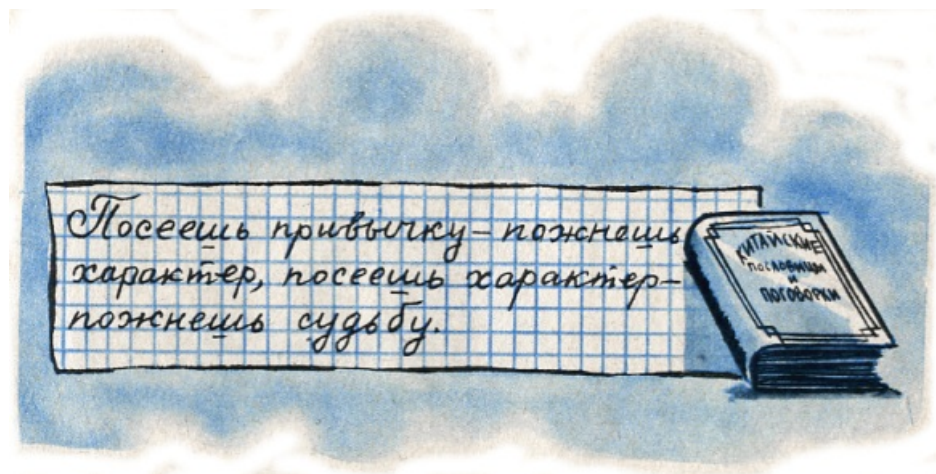 Посеешь привычку – пожнешь
характер, посеешь характер –
пожнешь судьбу.
КИТАЙСКИЕ
ПОСЛОВИЦЫ
И
ПОГОВОРКИ